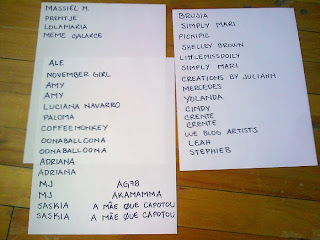 MASSIEL M.
PRENTJE
LOLAMARIA
MEME GALARCE
ALE
NOVEMBER GIRL
AMY
AMY
LUCIANA NAVARRO
PALOMA
COFFEEMONKEY
OONABALLOONA
OONABALLOONA
ADRIANA
ADRIANA
MJ AG78
MJ AKAMAMMA
SASKIA A MÃE QUE CAPOTOU
SASKIA A MÃE QUE CAPOTOU
BRUJIA
SIMPLY MARI
PICNIPIC
SHELLEY BROWN
LITTLEMISSDOILY
SIMPLY MARI
CREATIONS BY JULIAHN
MERCEDES
YOLANDA
CINDY
CRENTE
CRENTE
WE BLOG ARTISTS
LEAH
STEPHIEB